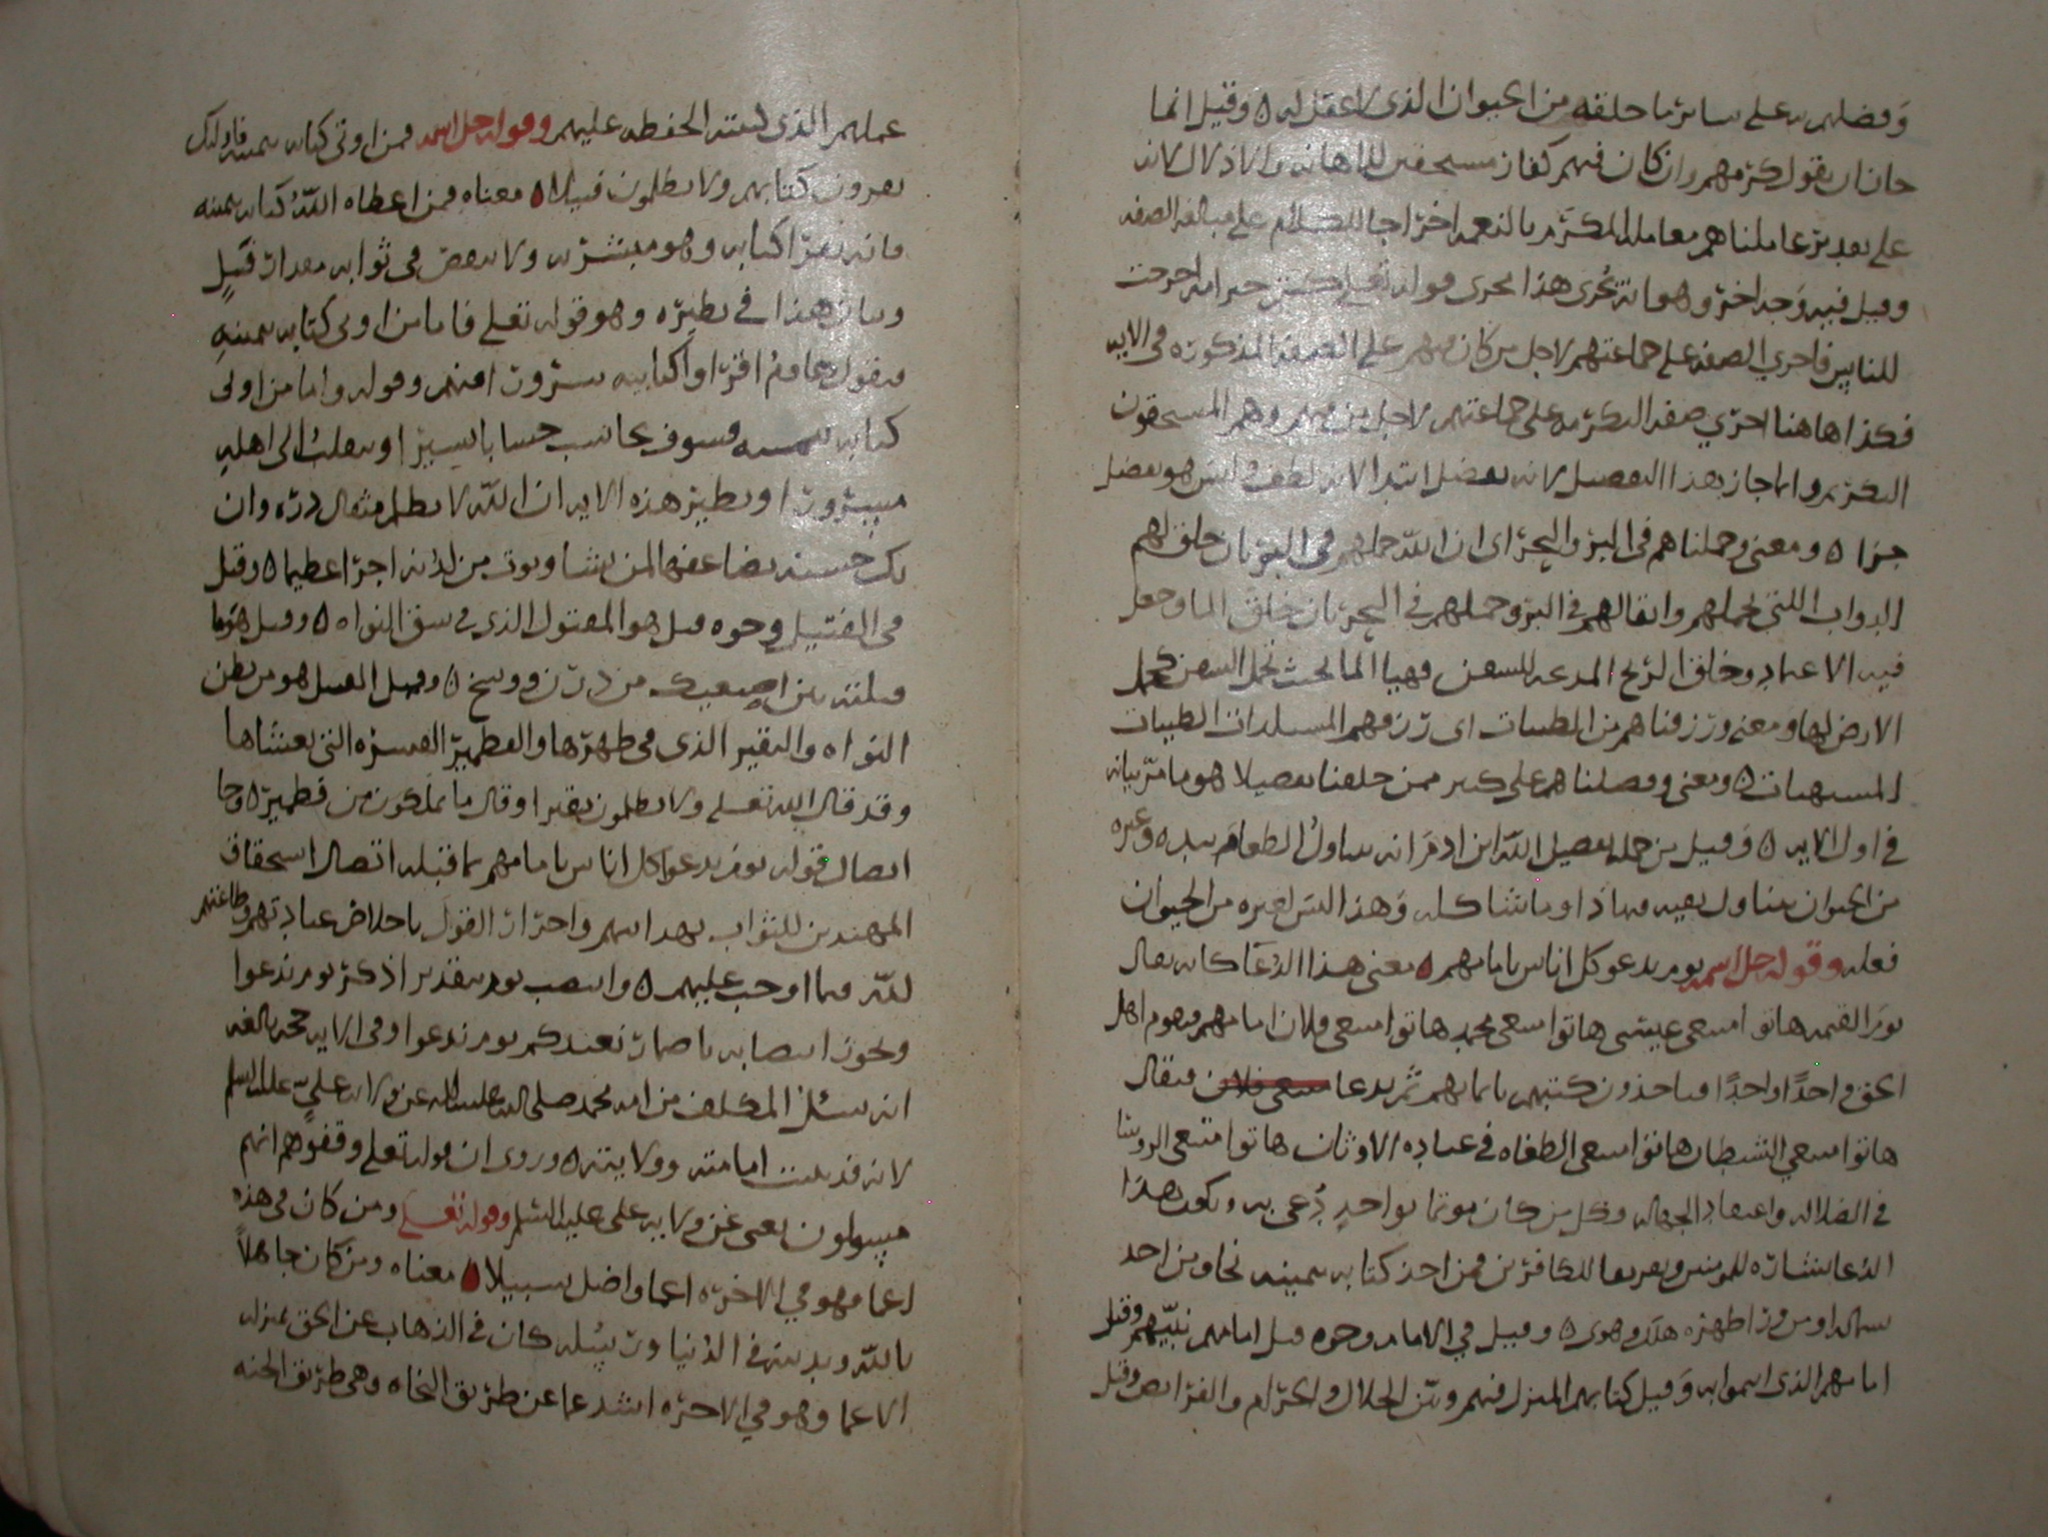 وفضلهم به على سائر ما خلقه من الحيوان الذي لا عقل له ه وقيل انما
جاز ان يقول كرمهم وان كان فيهم كفار مستحقين للاهانة والاذلال لانه
على تقدير عاملناهم معاملة المكرم بالنعمه اخراجا للكلام على مبالغه الصفه
وقيل فيه وجه اخر وهو انه يجري هذا مجرى قوله تعلى كنتم خير امة اخرجت
للناس فاجري الصفه على جماعتهم لاجل من كان منهم على الصفه المذكوره في الايه
فكذا هاهنا اجري صفه التكرمه على جماعتهم لاجل من منهم وهم المستحقون
التكريم وانما جاز بهذا التفضيل لانه تفضل ابتدا لانه لطف وليس هو تفضل
جزا ه ومعنى وحملناهم في البر والبحر اي ان الله حملهم في البر بان خلق لهم
الدواب اللتي تحملهم واثقالهم في البر وحملهم في البحر بان خلق الما وجعل
فيه الاعتماد وخلق الريح المدعه للسفن وهيا الما بحيث تحمل السفن كحمل
الارض لها ومعنى ورزقناهم من الطيبات اي رزقهم المستلذات الطيبات
المشتهيات ه ومعنى وفضلناهم على كثير ممن خلقنا تفضيلا هو ما مر بيانه
في اول الايه ه وقيل من جملة تفضيل الله ابن ادم انه يتناول الطعام بيده ه وغيره
من الحيوان يتناول بفيه مهاذا وما شاكله وهذا ليس لغيره من الحيوان
فعله وقوله جل اسمه يوم ندعو كل اناس بامامهم ه معنى هذا الدعا كانه يقال
يوم القيمه هاتوا متبعي عيسى هاتوا متبعي محمد هاتوا متبعي فلان امامهم فيقوم اهل
الحق واحدا واحدا فياخذون كتبهم بايمانهم ثم يدعا متبعي فلان فيقال
هاتوا متبعي الشيطان هاتوا متبعي الطغاه في عباده الاوثان هاتوا متبعي الروسا
في الضلاله واعتقاد الجهاله وكل من كان موتما بواحد دعي به ويكون هذا
الدعا بشاره للمومنين وتعريفا للكافرين فمن اخذ كتابه بيمينه نجا ومن اخذ
بشماله او من ورا ظهره هلك وهوى ه وقيل في الامام وجوه قيل امامهم نبيهم وقيل
امامهم الذي ائتموا به وقيل كتابهم المنزل فيهم وبين الحلال والحرام والفرائض وقيل
عملهم الذي كتبته الحفظه عليهم وقوله جل اسمه فمن اوتي كتابه بيمينه فاولئك
يقرون كتابهم ولا يظلمون فتيلا ه معناه فمن اعطاه الله كتابه بيمينه
فانه يقرا كتابه وهو مبتشر به ولا ينقص في ثوابه مقدار فتيل
وبيان هذا في نظيره وهو قوله تعلى فاما من اوتي كتابه بيمينه
فيقول هاوم اقراوا كتابيه سيرون امنهم وقوله واما من اوتي
كتابه بيمينه فسوف يحاسب حسابا يسيرا وينقلب الى اهله
مسرورا ونظير هذه الايه ان الله لا يظلم مثقال ذره وان
تك حسنه يضاعفها لمن يشا ويوت من لدنه اجرا عظيما ه وقيل
في الفتيل وجوه قيل هو المفتول الذي في شق النواه ه وقيل هو ما
فتلته بين اصبعيك من درن ووسخ ه وقيل الفتيل هو من بطن
النواه والنقير الذي في ظهرها والقطمير القشره التي تغشاها
وقد قال الله تعلى ولا يظلمون نقيرا وقال ما يملكون من قطمير ه وجا
اتصال قوله يوم ندعوا كل اناس بامامهم بما قبله اتصال استحقاق
المهتدين للثواب بهداهم واحتراز القول باخلاص عبادتهم وطاعتهم
لله فيما اوجب عليهم ه وانتصب يوم بتقدير اذكر يوم ندعوا
ويجوز انتصابه باضمار نعيدكم يوم ندعوا وفي الايه حجه بالغه
انه يسئل المكلف من امه محمد صلى الله عليه واله عن ولايه علي عليه السلم
لانه قد ثبتت امامته وولايته ه وروى ان قوله تعلى وقفوهم انهم
مسولون يعني عن ولايه على عليه السلم وقوله تعلى ومن كان في هذه
اعما فهو في الاخره اعما واضل سبيلا ه معناه ومن كان جاهلا
بالله وبدينه في الدنيا ورسله كان في الذهاب عن الحق بمنزله
الاعما وهو في الاخره اشد عما عن طريق النجاه وهي طريق الجنه